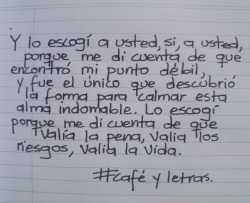 Y lo escogí a usted, si, a usted,
porque me di cuenta de que
encontró mi punto débil,
y fue el único que descubrió
la forma para calmar esta
alma indomable. Lo escogí
porque me di cuenta de que
Valía la pena, Valía los
riesgos, Valía la Vida.
#café y letras.